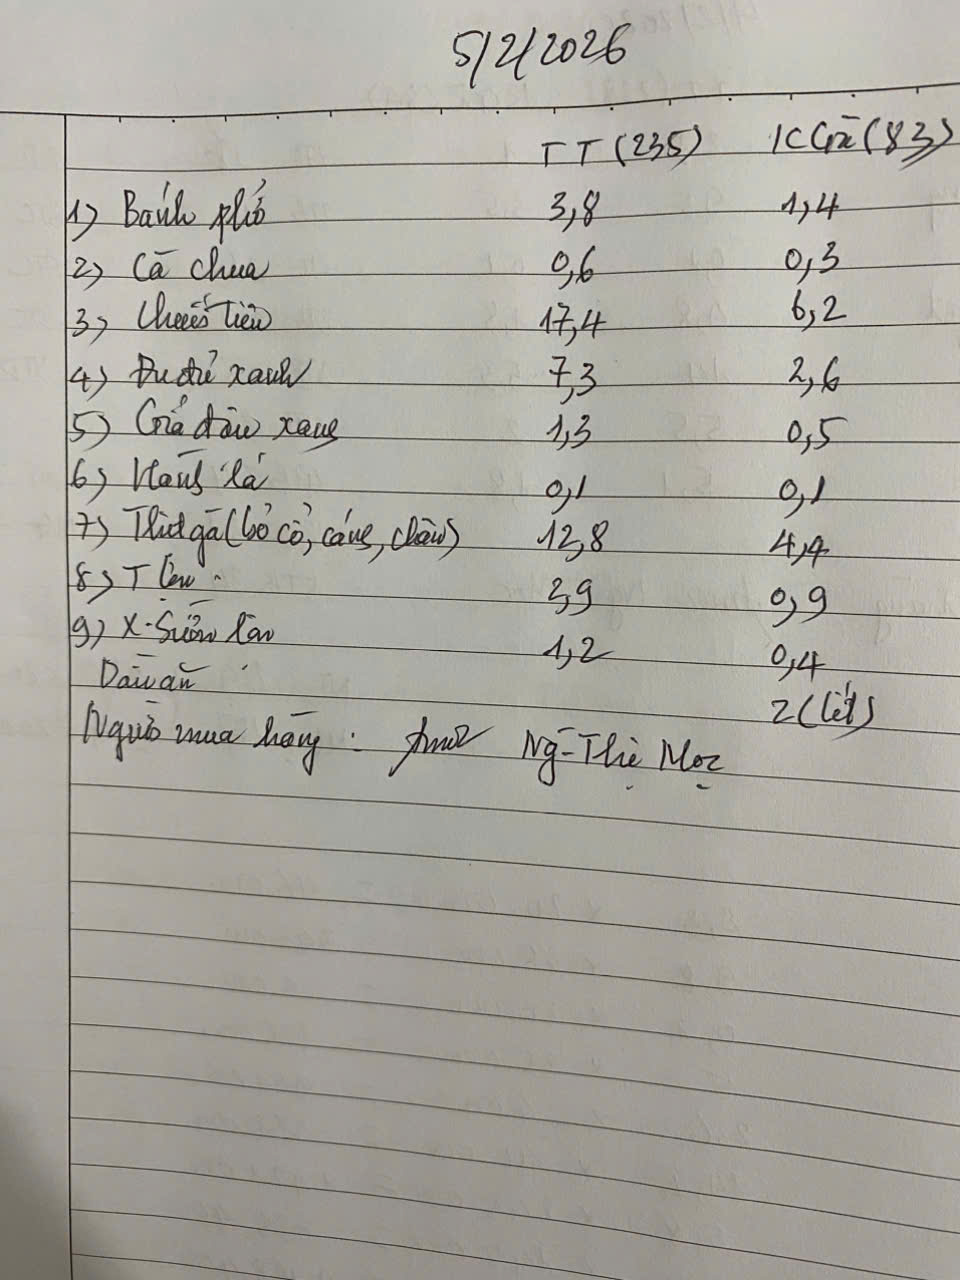 5/2/2026
TT (235) KCGĩ (83)
1) Bánh phở 3,8 1,4
2) Cà chua 0,6 0,3
3) Chuối tiêu 17,4 6,2
4) Đu đủ xanh 7,3 2,6
5) Giá đậu xanh 1,3 0,5
6) Hành lá 0,1 0,1
7) Thịt gà (bỏ cổ, cánh, chân) 12,8 4,4
8) T lợn 0,9
9) X-Sườn lợn 1,2 0,4
Dầu ăn 2 (lít)
Người mua hàng: Ng-Thị Mọc